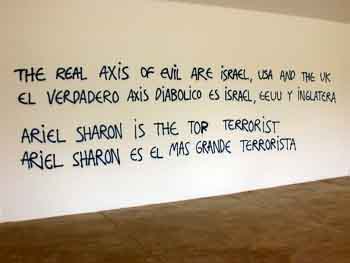 THE REAL AXIS OF EVIL ARE ISRAEL, USA AND THE UK
EL VERDADERO AXIS DIABOLICO ES ISRAEL, EEUU Y INGLATERA
ARIEL SHARON IS THE TOP TERRORIST
ARIEL SHARON ES EL MAS GRANDE TERRORISTA